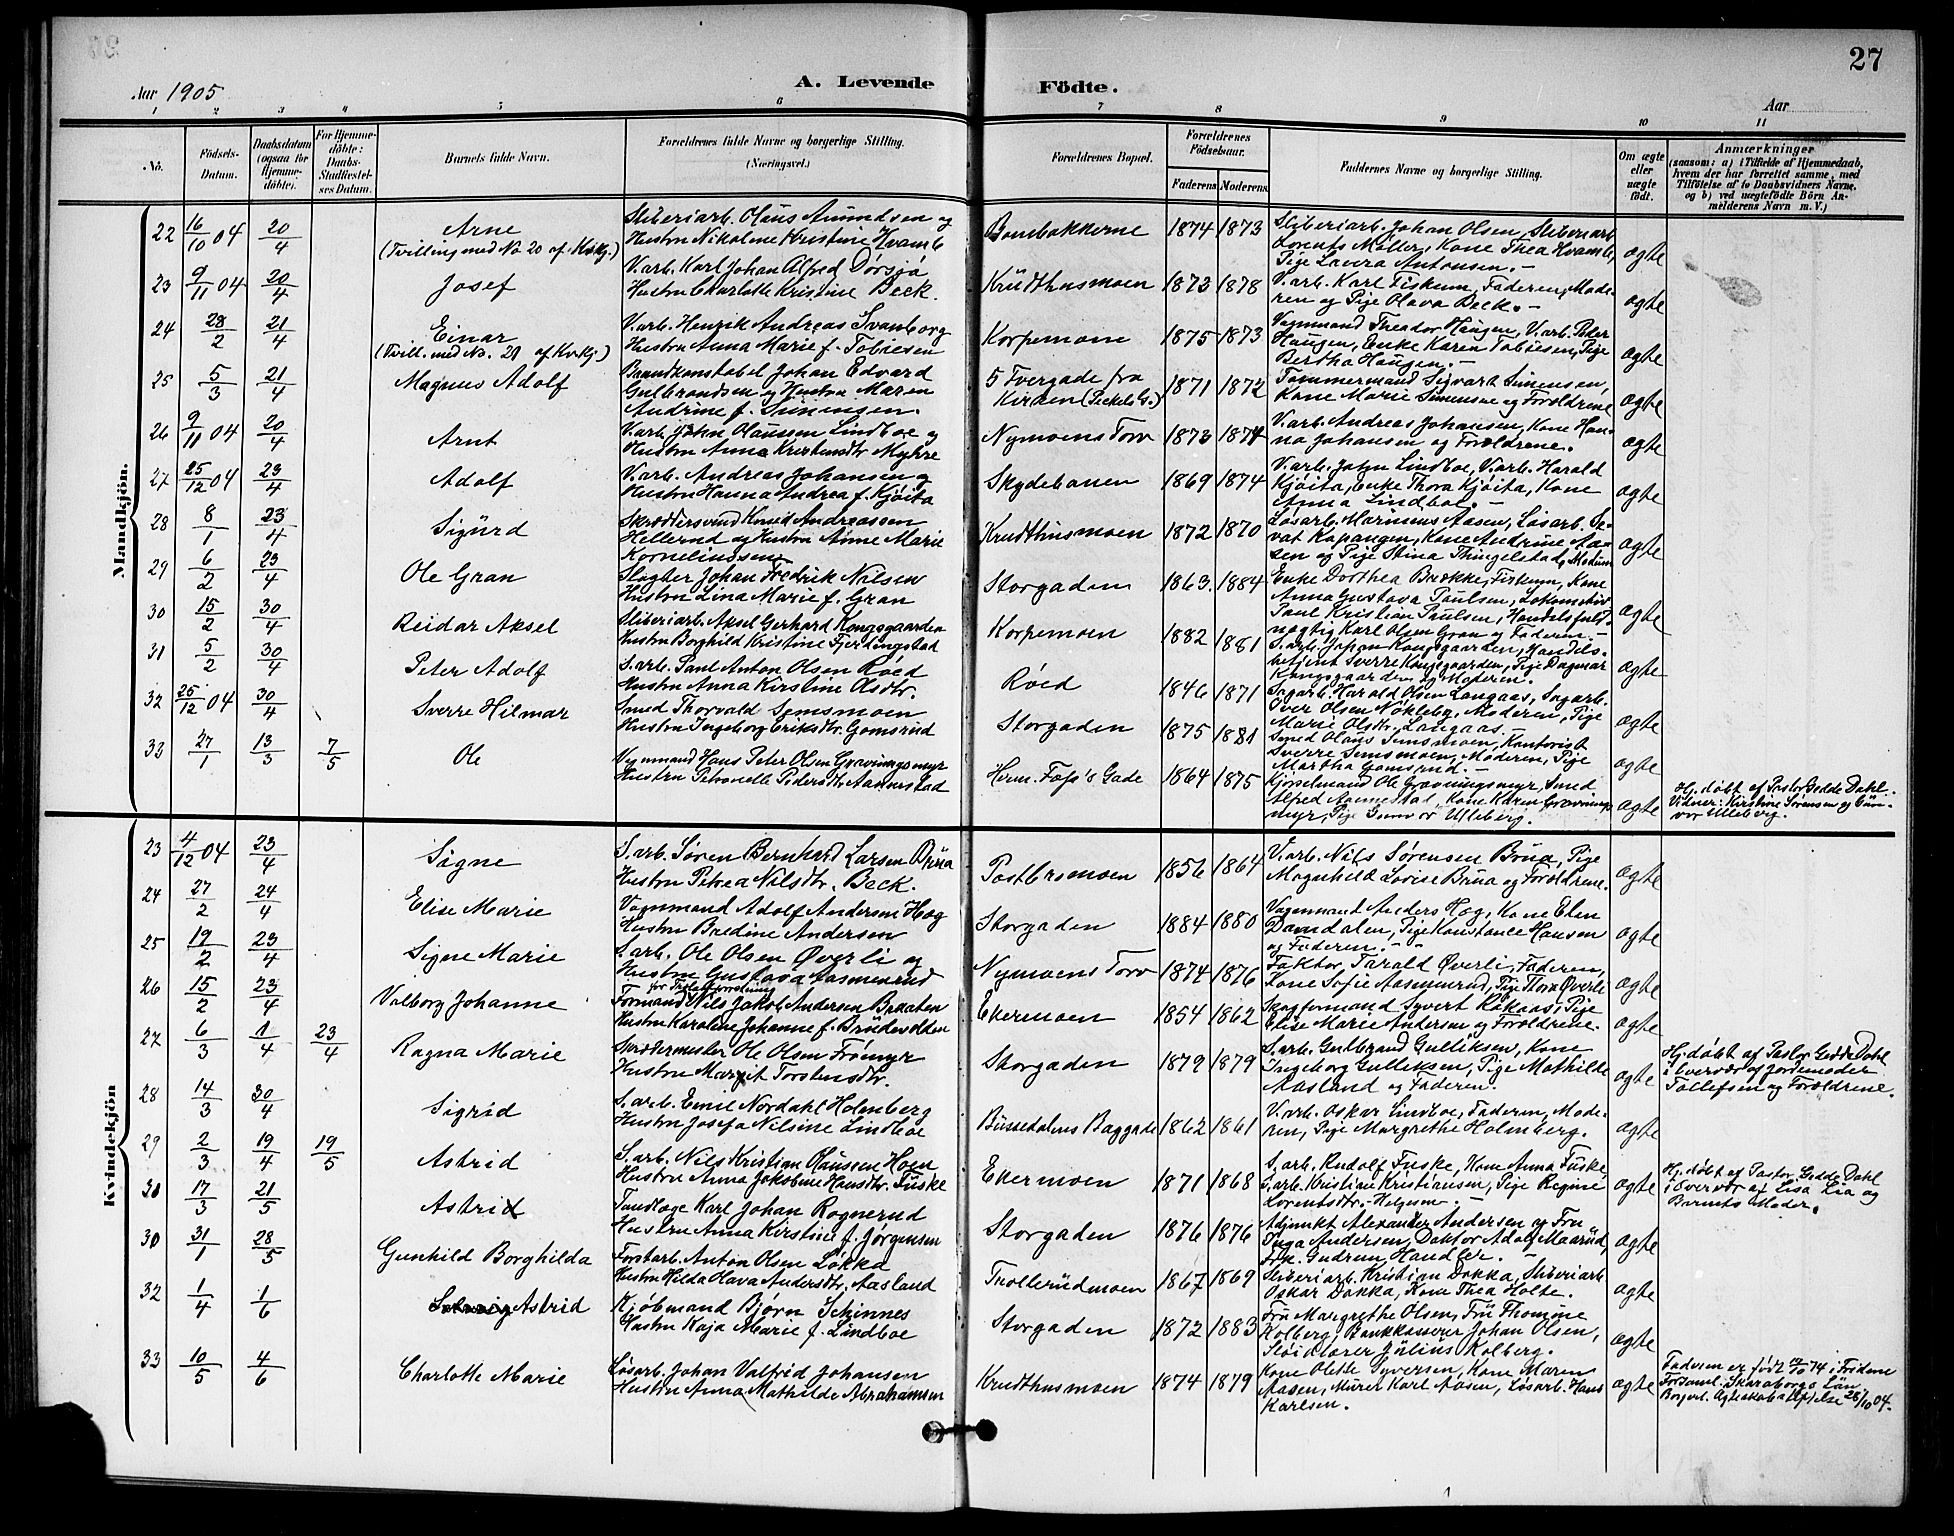 27
Aar 1905
A. Levende Födte.
Aar
1 2 3 4 5 6 7 8 9 10 11
No.
Födsels-Datum.
Daabsdatum (ogsaa for Hjemme-döbte).
For Hjemme-döbte: Daabs-Stadfæstel-ses Datum.
Barnets fulde Navn.
Forældrenes fulde Navne og borgerlige Stilling. (Næringsvei.)
Forældrenes Bopæl.
Forældrenes Födselsaar.
Faderens Moderens
Faddernes Navne og borgerlige Stilling.
Om ægte eller uægte födt.
Anmærkninger
(saasom: a) i Tilfælde af Hjemmedaab,
hvem der har forrettet samme, med
Tilföielse af to Daabsvidners Navne,
og b) ved uægtefödte Börn An-
melderens Navn m. V.)
Mandkjön.
22 16/10 04 20/4 Arne
(Tvilling med No 20 af Kvkj.)
Sliberiarb. Olaus Amundsen og
Hustru Nikoline Kristine Kvamb
1874 1873
Sliberiarb. Johan Olsen, Sliberiarb.
Lorents Møller, Kone Thea Kvamb,
Pige Laura Antonsen.-
ægte
23 9/11 04 20/4 Josef
V.arb. Karl Johan Alfred Dørsjø
Hustru Charlotte Kristine Beck.
Krudthusmoen 1873 1878
V.arb. Karl Fiskum, Faderen, Mode-
ren og Pige Olava Beck.-
ægte
24 28/2 21/4 Einar
(Tvill. med No. 21 af Kvkj.)
V.arb. Henrik Andreas Svanborg
Hustru Anna Marie f. Tobiesen
Korpemoen 1875 1873
Vognmand Theodor Haugen, V.arb. Peter
Haugen, Enke Karen Tobiesen, Pige
Bertha Haugen.-
ægte
25 5/3 21/4 Magnus Adolf
Brandkonstabel Johan Edvard
Gulbrandsen og Hustru Maren
Andrine f.
5 Tvergade fra
Kirken 1871 1872
Tømmermand Sigvart Simensen,
Kone Marie Simensen og Forældrene
ægte
26 9/11 04 20/4 Arnt
V.arb. John Olausen Lindboe og
Hustru Anna Kristiansdtr. Myhre
Nymoens Torv 1873 1874
V.arb. Andreas Johansen, Kone Han-
na Johansen og Forældrene.
ægte
27 25/12 04 23/4 Adolf
V.arb. Andreas Johansen og
Hustru Hanna Andrea f. Kjøita
Skydebanen 1869 1874
V.arb. John Lindboe, V.arb. Harald
Kjøita, Enke Thora Kjøita, Kone
Anna Lindboe.-
ægte
28 8/1 23/4 Sigurd
Skræddersvend Knud Andreassen
Hellerud og Hustru Anne Marie
Korneliussen
Krudthusmoen 1872 1870
Løsarb. Marinus Aasen, Løsarb. Si-
vat Kapangen, Kone Andrine Aa-
sen og Pige Stina Thingelstad, Modum
ægte
29 6/2 23/4 Ole Gran
Slagter Johan Fredrik Nilsen
Hustru Lina Marie f. Gran
Storgaden 1863. 1884
Enke Dorthea Brække, Fiskum, Kone
Anna Gustava Paulsen, Lokomotiv
Paul Kristian Paulsen, Handelsfuld-
mægtig Karl Olsen Gran og Faderen.-
ægte
30 15/2 30/4 Reidar Aksel
Sliberiarb. Aksel Gerhard Kongsgaarden
Hustru Borghild Kristine Fjerdingstad
Korpemoen 1882 1881
S.arb. Johan Kongsgaarden, Handels-
betjent Sverre Kongsgaarden, Pige Dagmar
Kongsgaarden og Moderen.
ægte
31 5/2 30/4 Peter Adolf
S.arb. Paul Anton Olsen Røed
Hustru Anna Kirstine Olsdtr.
Røed 1846 1871
Sagarb. Harald Olsen Langaas, Sagarb.
Iver Olsen Nøkleby, Moderen, Pige
Marie Olsdtr. Langaas.-
ægte
32 25/12 04 30/4 Sverre Hilmar
Smed Thorvald Semsmoen
Hustru Ingeborg Eriksdtr. Gomsrud
Storgaden 1875 1881
Smed Olaus Semsmoen, Kontorist
Sverre Semsmoen, Moderen, Pige
Martha Gomsrud.-
ægte
33 27/1 13/3 7/5 Ole
Vognmand Hans Peter Olsen Gravningsmyr
Hustru Petronelle Pedersdtr. Aannestad
Herm. Foss's Gade 1864 1875
Kjørselmand Ole Gravningsmyr, Smed
Alfred Aannestad, Kone Karen Gravnings-
myr, Pige Gunvor Ulleberg.
ægte
Hj. døbt af Pastor Gedde Dahl.
Vidner: Kirstine Sørensen og Gun-
vor Ulleberg.
Kvindekjön
23 4/12 04 23/4 Signe
S.arb. Søren Bernhard Larsen Brua
Hustru Petrea Nilsdtr. Beck.
1856 1864
V.arb. Nils Sørensen Brua, Pige
Magnhild Lovise Brua og Forældrene.
ægte
24 27/2 24/4 Elise Marie
Vognmand Adolf Andersen Hæg
Hustru Bredine Andersen
Storgaden 1884 1880
Vognmand Anders Hæg, Kone Elen
Damdalen, Pige Konstance Hansen
og Faderen.-
ægte
25 19/2 23/4 Signe Marie
S.arb. Ole Olsen Øverli og
Hustru Gustava Aasmunrud
Nymoens Torv 1874 1876
Faktor Tarald Øverli, Faderen,
Kone Sofie Aasmunrud, Pige Thora Øverli
ægte
26 15/2 23/4 Valborg Johanne
Formand Nils Jakob Andersen Braaten
Hustru Karoline Johanne f. Brudevolden
Ekermoen 1854 1862
Skogformand Syvert Rakaas, Pige
Elise Marie Andersen og Forældrene.
ægte
27 6/3 1/4 23/4 Ragna Marie
Skreddermester Ole Olsen Frømyr
Hustru Margit Torstensdtr.
Storgaden 1879 1879
S.arb. Gulbrand Gulliksen, Kone
Ingeborg Gulliksen, Pige Mathilde
Aasland og Faderen.
ægte
Hj. døbt af Pastor Gedde Dahl
i Overvær af Jordemoder
Tollefsen og Forældrene.
28 14/3 30/4 Sigrid
S.arb. Emil Nordahl Holmberg
Hustru Josefa Nilsine Lindboe
Bussedalens Baggade 1862 1861
V.arb. Oskar Lindboe, Faderen, Mode-
ren, Pige Margrethe Holmberg.
ægte
29 2/3 19/4 19/5 Astrid
S.arb. Nils Kristian Hansen Hoen
Hustru Anna Jakobine Hansdtr. Fuske
Ekermoen 1871 1868
S.arb. Rudolf Fuske, Kone Anna Fuske,
S.arb. Kristian Kristiansen, Pige Regine
Lorentsdtr. Helgesen.-
ægte
Hj. døbt af Pastor Gedde Dahl
i Overvær af Lisa Lia og
Barnets Moder.
30 17/3 21/5 Astrid
Tandlæge Karl Johan Rognerud
Hustru Anna Kirstine f. Jørgensen
Storgaden 1876 1876
Adjunkt Alexander Andersen og Fru
Inga Andersen, Doktor Adolf Maarud,
Frk. Gudrun Handler.-
ægte
30 31/1 28/5 Gunhild Borghilda
Forstarb. Anton Olsen Løkka
Hustru Hilda Olava Andersdtr. Aasland
Trollerudmoen 1867 1869
Sliberiarb. Kristian Dokka, Sliberiarb
Oskar Dokka, Kone Thea Holte.
ægte
32 1/4 1/6 Astrid
Kjøbmand Bjørn Schinnes
Hustru Kaja Marie f. Lindboe
Storgaden 1872 1883
Fru Margrethe Olsen, Fru Thomine
Kolberg, Bankkasserer Johan Olsen,
Sløidlærer Julius Kolberg.
ægte
33 10/5 4/6 Charlotte Marie
Løsarb. Johan Valfrid Johansen
Hustru Anna Mathilde Abrahamsen
Krudthusmoen 1874 1879
Kone Olette Syversen, Kone Maren
Aasen, Murer Karl Aasen, Løsarb. Hans
Karlsen.
ægte
Faderen er født 74 i Fridene
Forsaml. Skaraborgs Län
Borgerl. Ægteskab 28/10 04.